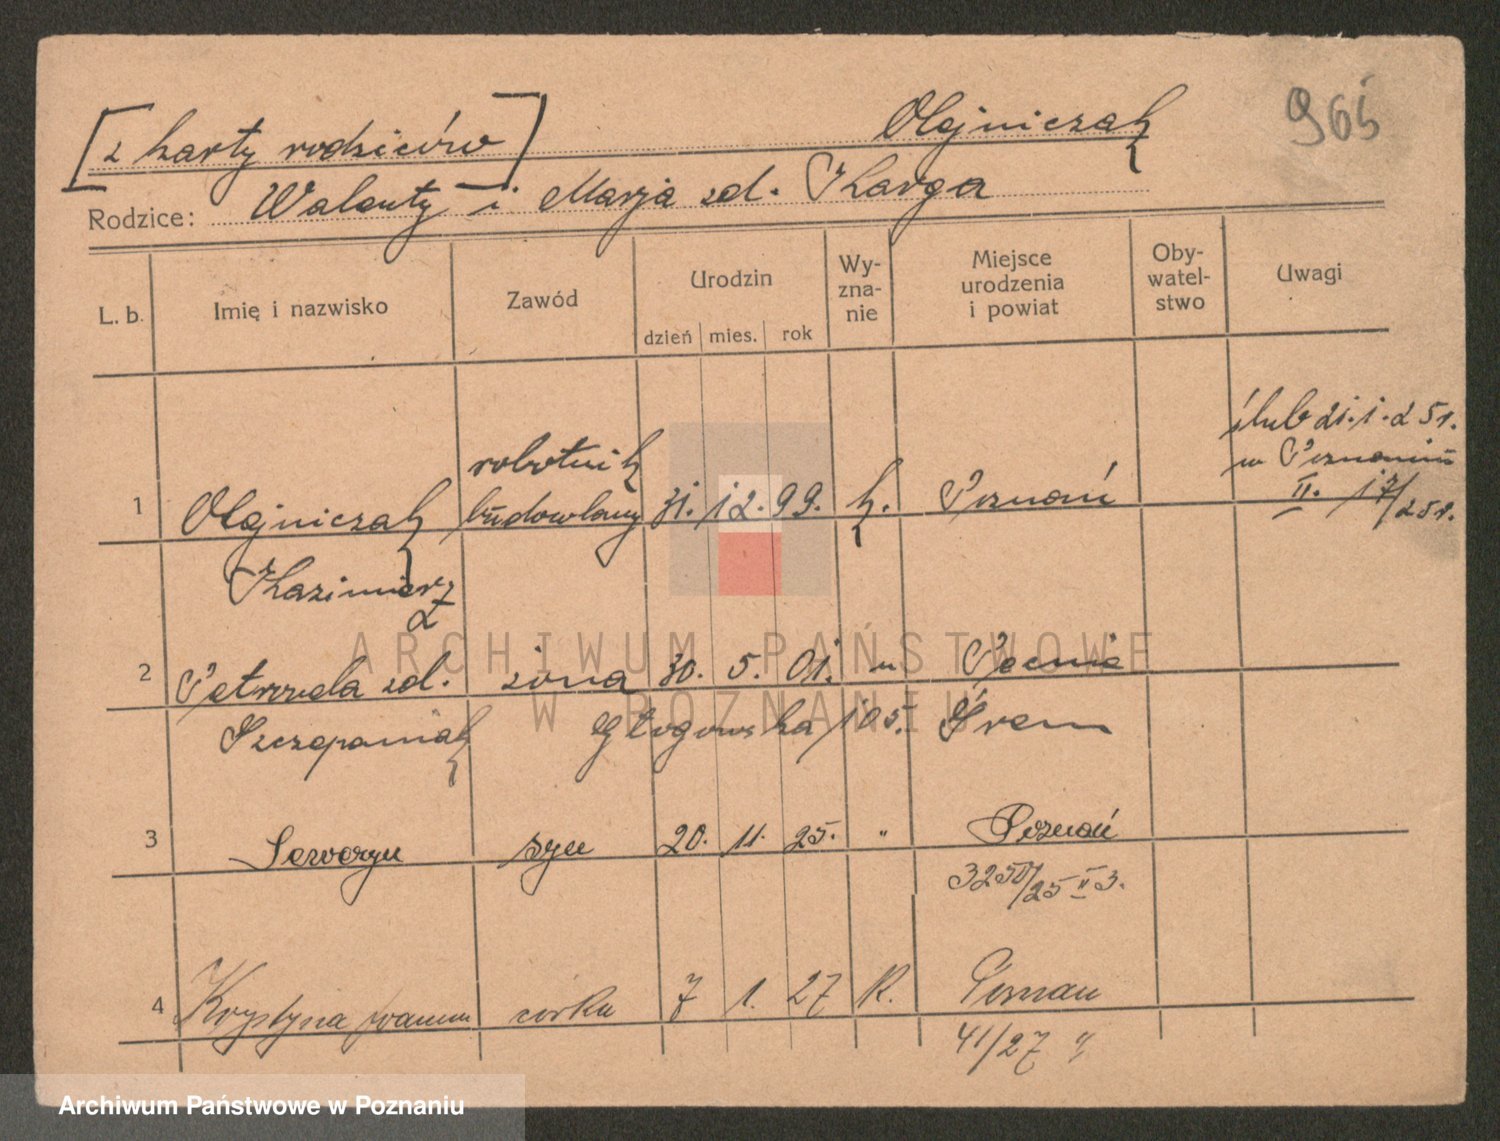 965
Olejniczak
[z karty rodziców]
Rodzice: Walenty i Marja zd. Karga
L. b. Imię i nazwisko Zawód Urodzin dzień mies. rok Wy-zna-nie Miejsce urodzenia i powiat Oby-watel-stwo Uwagi
ślub 21.1.25r.
w Poznaniu
II. 17/25r.
robotnik
1 Olejniczak budowlany 31. 12. 99. k. Poznań
Kazimierz
2 Petronela zd. żona 30. 5. 01. " Pecna
Szczepaniak Głogowska 105. Śrem
3 Seweryn syn 20. 11. 25. " Poznań
3250/25 II 3.
4 Krystyna córka 7 1. 27 K. Poznań
41/27
ARCHIWUM PAŃSTWOWE
W POZNANIU
Archiwum Państwowe w Poznaniu